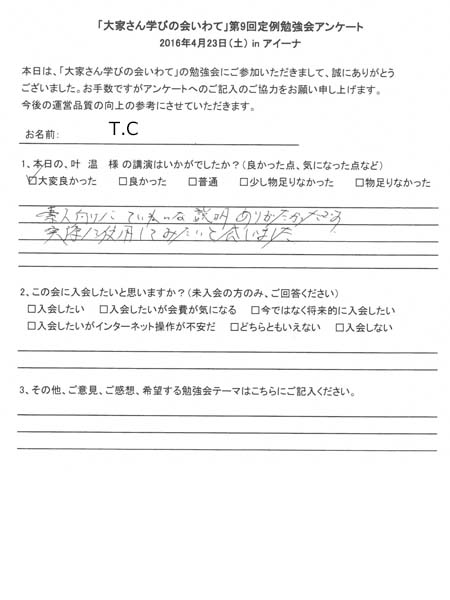 「大家さん学びの会いわて」第9回定例勉強会アンケート
2016年4月23日（土） in アイーナ
本日は、「大家さん学びの会いわて」の勉強会にご参加いただきまして、誠にありがとう
ございました。お手数ですがアンケートへのご記入のご協力をお願い申し上げます。
今後の運営品質の向上の参考にさせていただきます。
お名前： T.C
1、本日の、叶　温　様 の講演はいかがでしたか？（良かった点、気になった点など）
☑大変良かった　□良かった　□普通　□少し物足りなかった　□物足りなかった
素人向けに ていねいな 説明 ありがたかったです
実際に使用してみたいと感じました
2、この会に入会したいと思いますか？（未入会の方のみ、ご回答ください）
□入会したい　□入会したいが会費が気になる　□今ではなく将来的に入会したい
□入会したいがインターネット操作が不安だ　□どちらともいえない　□入会しない
3、その他、ご意見、ご感想、希望する勉強会テーマはこちらにご記入ください。